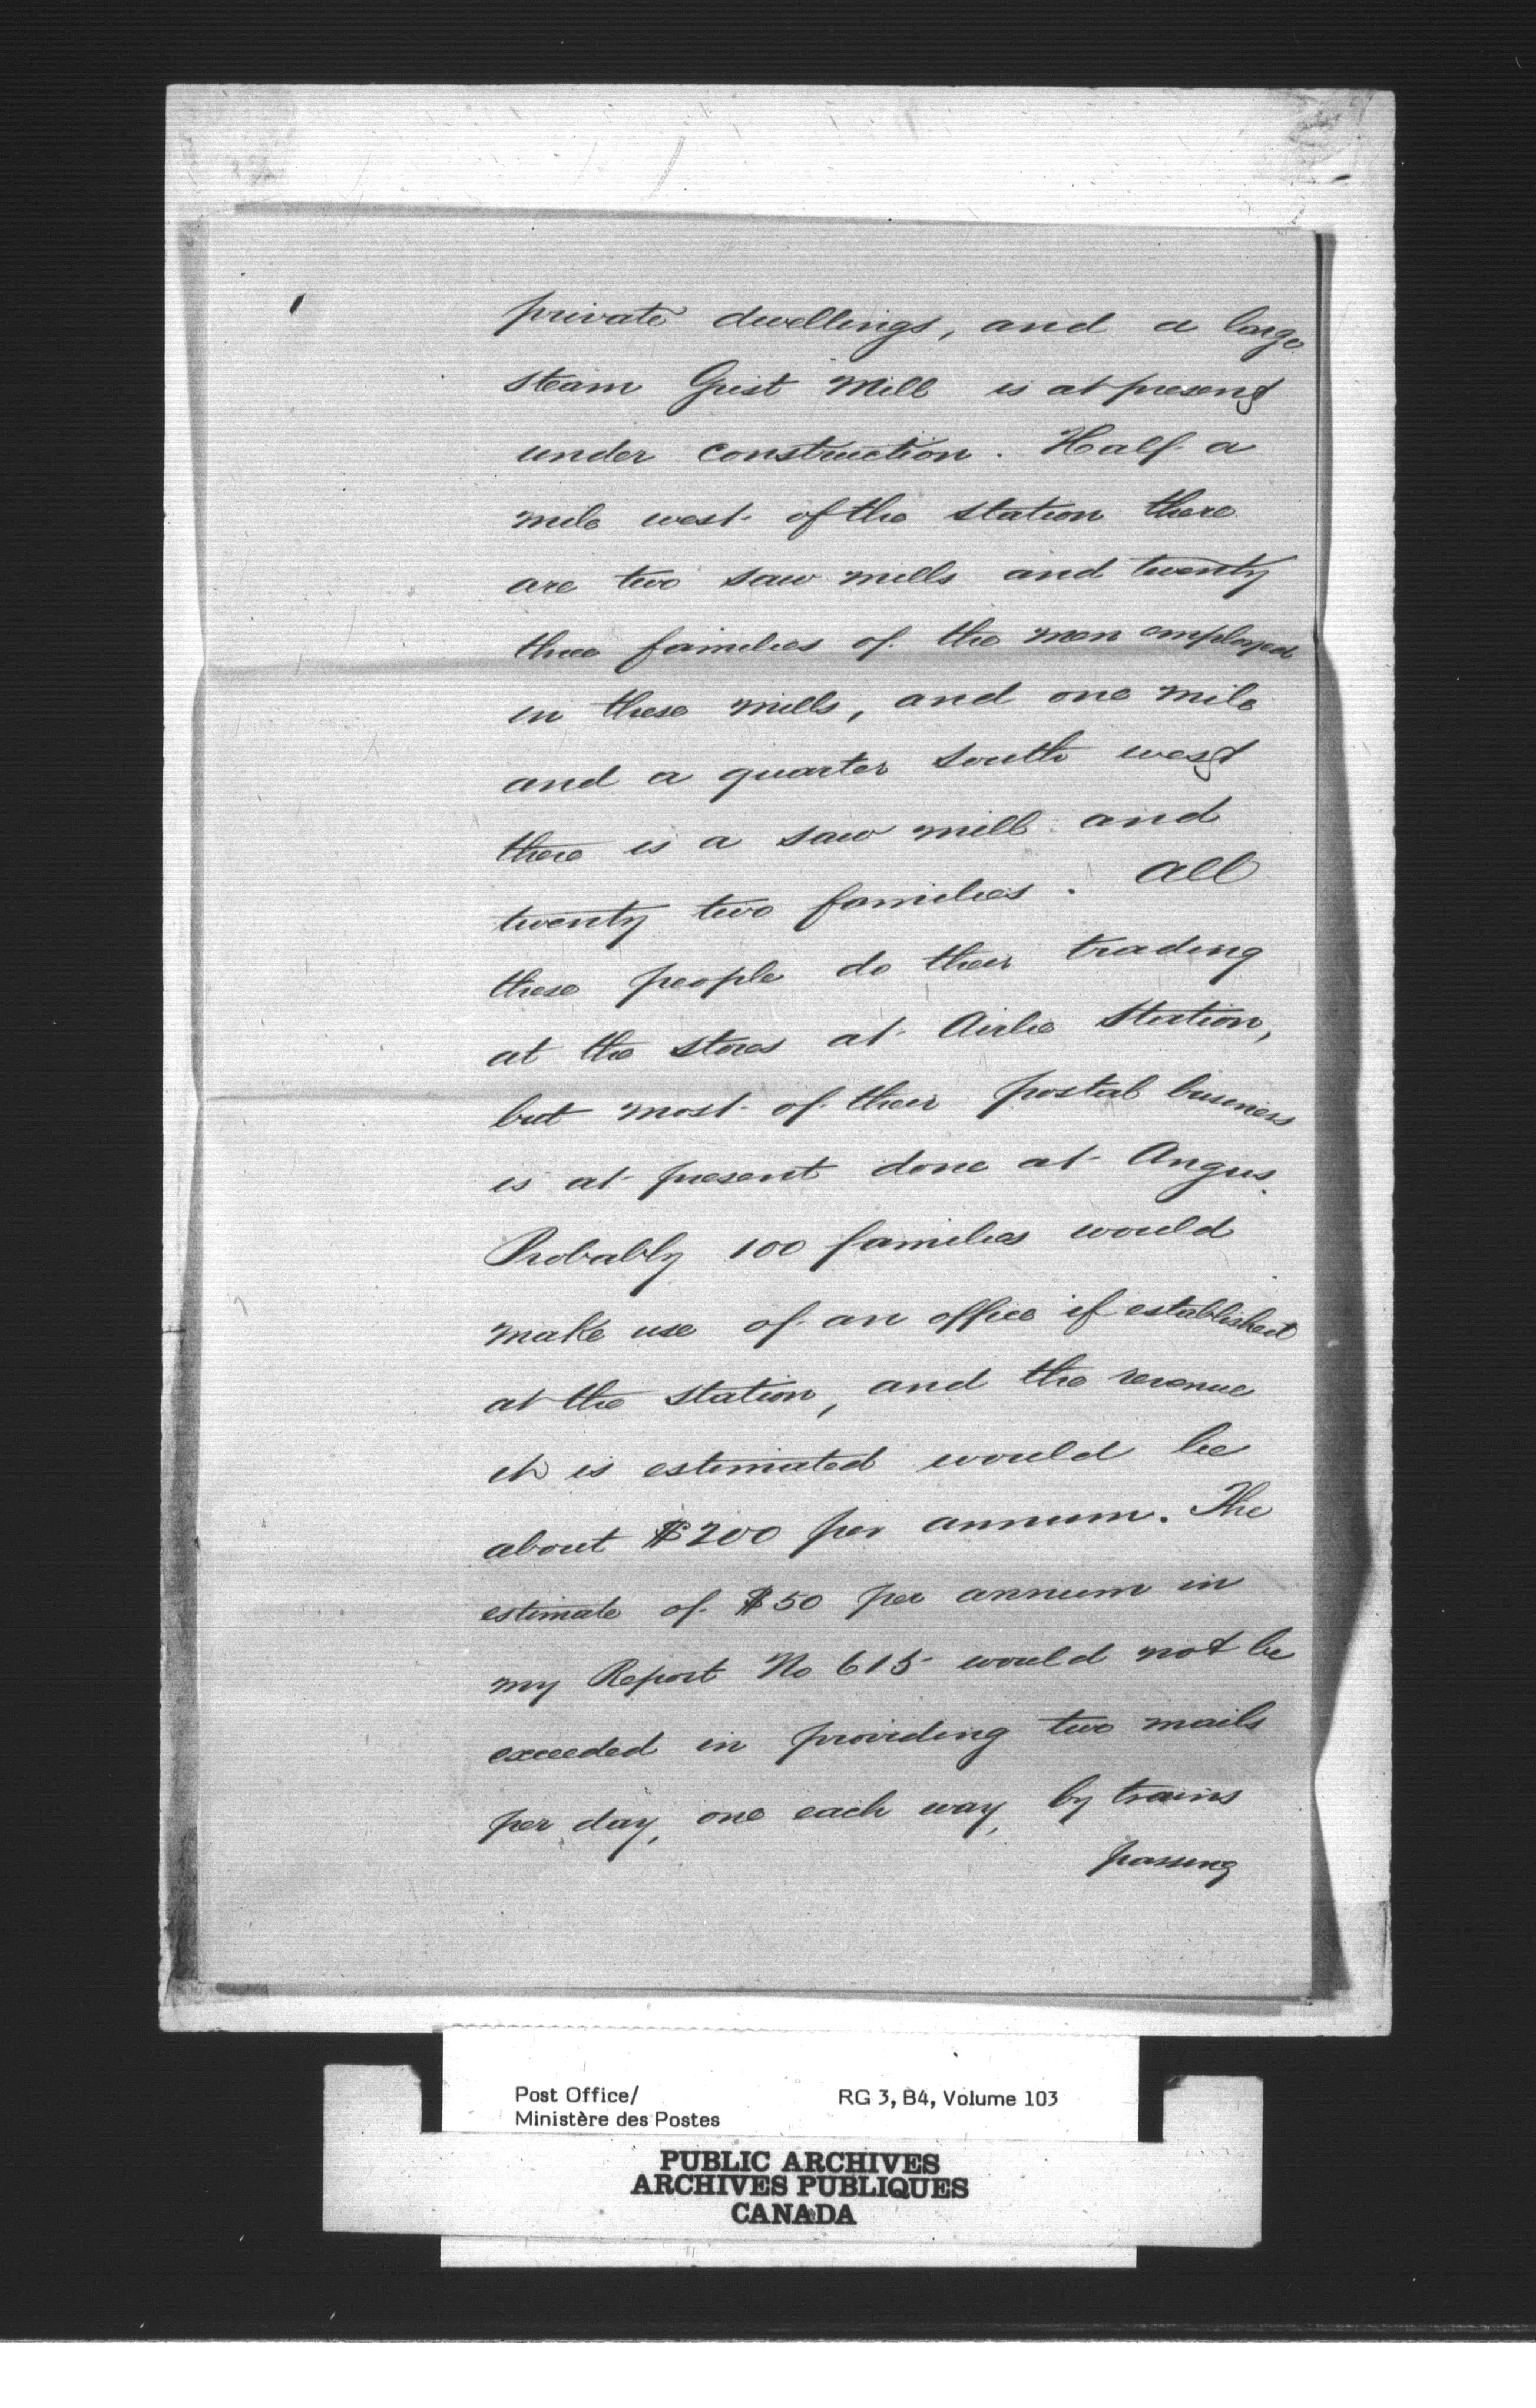 private dwellings, and a large
steam Grist Mill is at present
under construction. Half a
mile west of the station there
are two saw mills and twenty
three families of the men employed
in these mills, and one mile
and a quarter south west
there is a saw mill and
twenty two families. All
these people do their trading
at the stores at Airlie Station,
but most of their postal business
is at present done at Angus.
Probably 100 families would
make use of an office if established
at the station, and the revenue
it is estimated would be
about $200 per annum. The
estimate of $50 per annum in
my Report No 615 would not be
exceeded in providing two mails
per day, one each way, by trains
passing
Post Office/
Ministère des Postes
RG 3, B4, Volume 103
PUBLIC ARCHIVES
ARCHIVES PUBLIQUES
CANADA